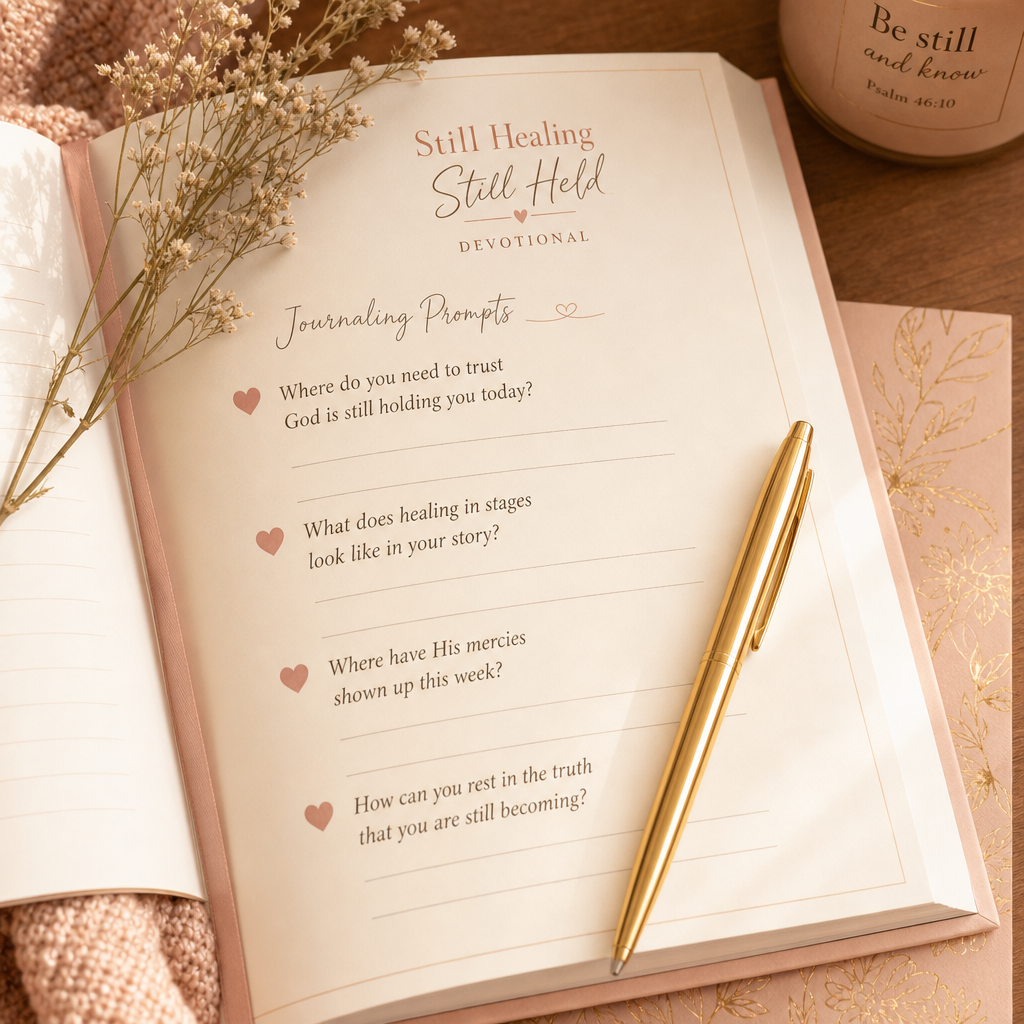 Be still
and know
Psalm 46:10
Still Healing
Still Held
DEVOTIONAL
Journaling Prompts
Where do you need to trust
God is still holding you today?
What does healing in stages
look like in your story?
Where have His mercies
shown up this week?
How can you rest in the truth
that you are still becoming?